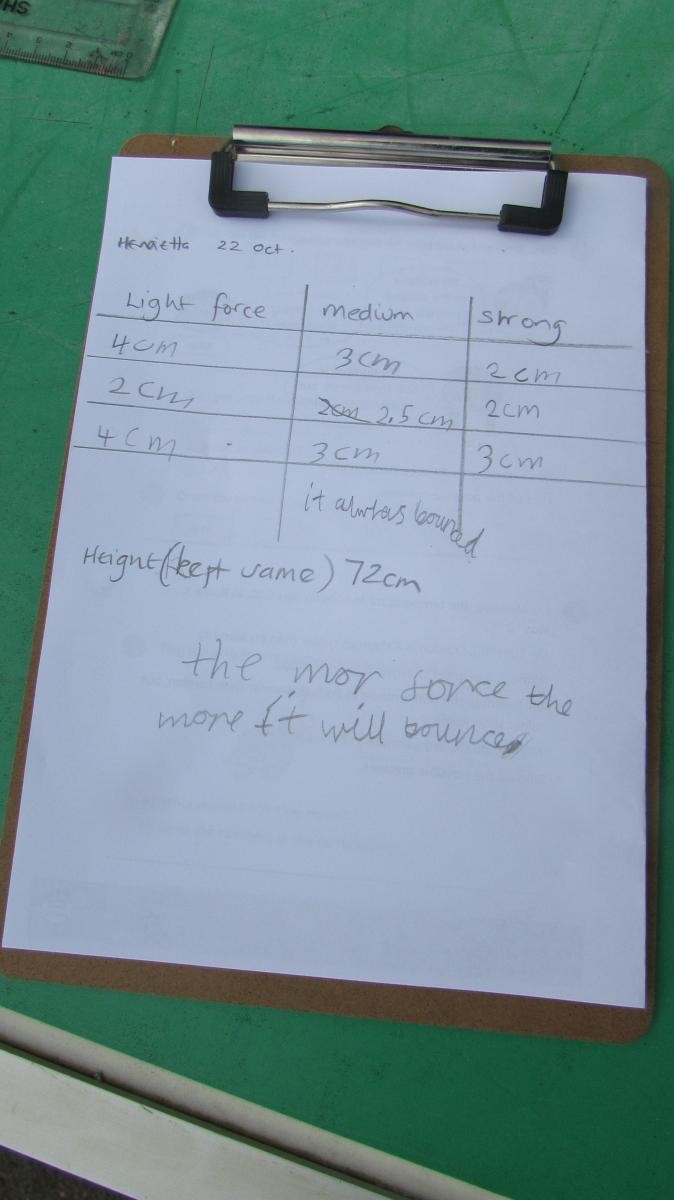 Henrietta 22 Oct.
Light force medium strong
4cm 3cm 2cm
2cm 2cm 2.5cm 2cm
4cm 3cm 3cm
it always bounced
Height (kept same) 72cm
the mor force the
more it will bounce